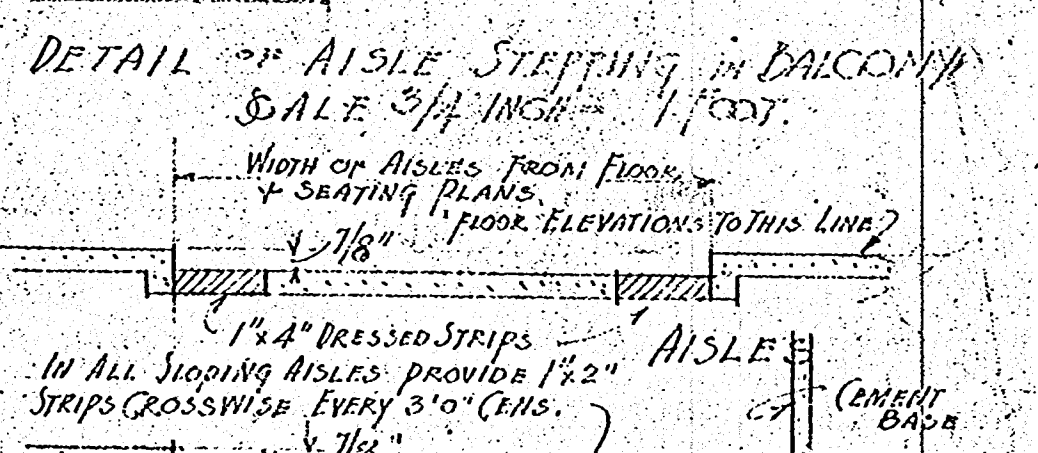 DETAIL OF AISLE STEPPING IN BALCONY
SCALE 3/4 INCH = 1 FOOT.
WIDTH OF AISLES FROM FLOOR
& SEATING PLANS.
FLOOR ELEVATIONS TO THIS LINE
7/8"
1"x4" DRESSED STRIPS
AISLES
IN ALL SLOPING AISLES PROVIDE 1"x2"
STRIPS CROSSWISE EVERY 3'0" CENS.
CEMENT
BASE
7/8"